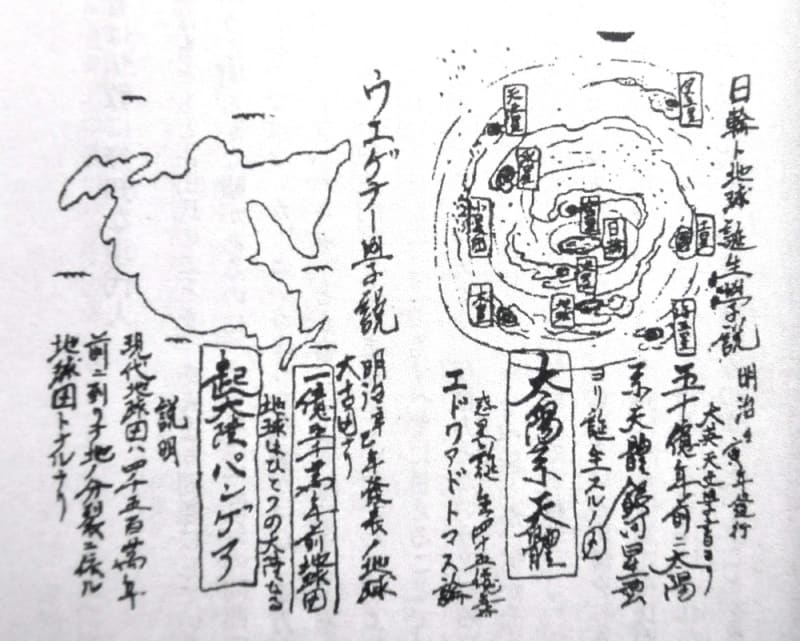 日輪ト地球誕生學説
明治 年発行
五十億年前ニ太陽
系天體銀河星雲
ヨリ誕生スルノ図
太陽系天體
惑星誕生四十五億年
エドワアドトマス論
天王星
冥王星
水星
小星団
日輪
土星
木星
地球
海王星
ウエゲナー學説
明治 年発表ノ地球
太古図ナリ
一億五千万年前地球図
地球はひとつの大陸なる
起大陸パンゲア
説明
現代地球図ハ四千五百萬年
前ニ到リテ地ノ分裂ニ依ル
地球図トナルナリ